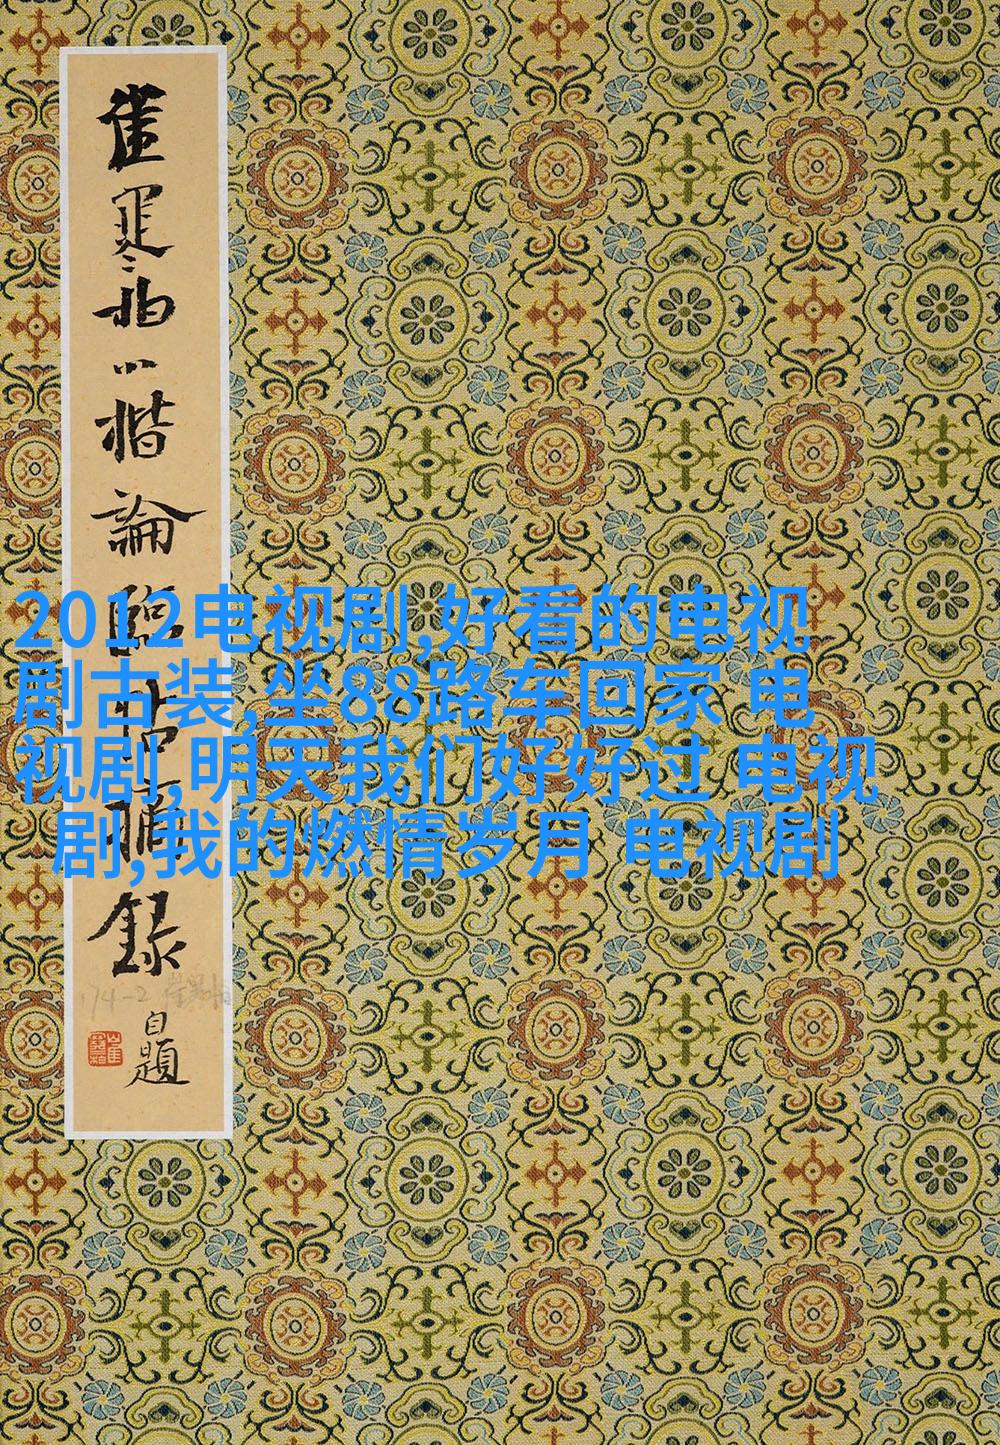 崔寒柏小楷論臨帖錄
自題
2012电视剧,好看的电视
剧古装,坐88路车回家 电
视剧,明天我们好好过 电视
剧,我的燃情岁月 电视剧